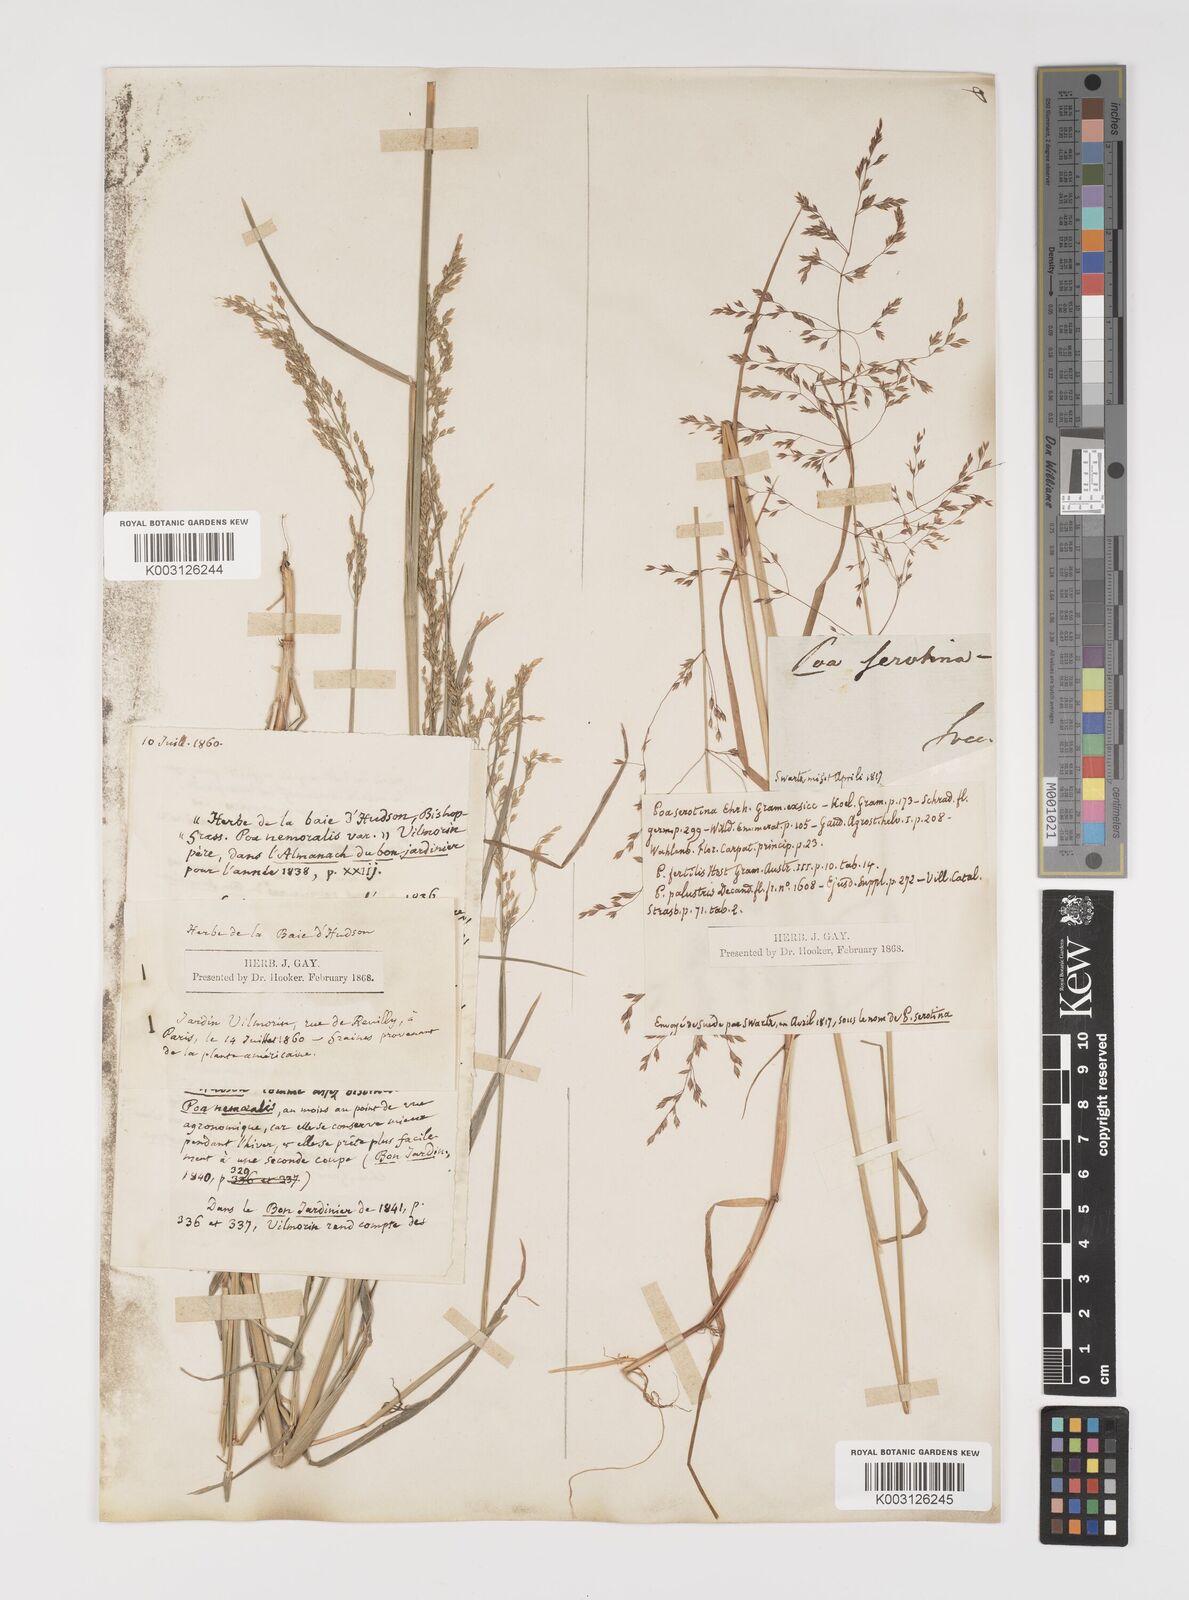 ROYAL BOTANIC GARDENS KEW
K003126244
10 Juill. 1860.
"Herbe de la baie d'Hudson, Bishop-
"Grass. Poa nemoralis var. " Vilmorin
père, dans l'Almanach du bon jardinier
pour l'année 1838, p. XXIIJ.
Herbe de la Baie d'Hudson
HERB. J. GAY.
Presented by Dr. Hooker. February 1868.
Jardin Vilmorin, rue de Reuilly, à
Paris, le 14 Juillet 1860 — Graines provenant
de la plante américaine.
Poa nemoralis, au moins au point de vue
agronomique, car elle se conserve mieux
pendant l'hiver, et elle se prête plus facile-
ment à une seconde coupe (Bon Jardin.,
1840, p. 329 336 et 337)
Dans le Bon Jardinier de 1841, p.
336 et 337, Vilmorin rend compte des
Poa serotina —
Suec.
Swartz misit Aprili 1817
Poa serotina Ehrh. Gram. exsicc — Koel. Gram. p. 173 — Schrad. fl.
germ p. 299 — Willd. Enumerat. p. 105 — Gaud. Agrost. helv. I. p. 208 —
Wahlenb. Flor. Carpat. princip. p. 23.
P. fertilis Host Gram. Austr. III. p. 10. tab. 14.
P. palustris Decand. fl. fr. n.º 1608 — Ejusd. Suppl. p. 272 — Vill. Catal.
Strasb. p. 71. tab. 2.
HERB. J. GAY.
Presented by Dr. Hooker, February 1868.
Envoyé de Suède par Swartz, en Avril 1817, sous le nom de P. serotina
ROYAL BOTANIC GARDENS KEW
K003126245
inches
centimeters
Density
Don Williams
M001021
Kew
Royal Botanic Gardens
copyright reserved
0 1 2 3 4 5 6 7 8 9 10
cm